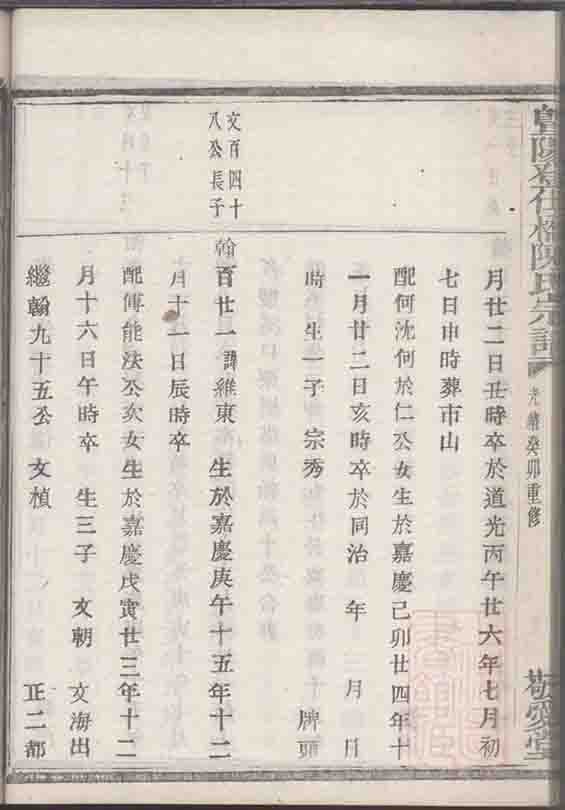 月廿二日丑時卒於道光丙午廿六年七月初
七日申時葬市山
配何沈何於仁公女生於嘉慶己卯廿四年十
一月廿二日亥時卒於同治 年 月 日
時 生一子 宗秀 牌頭
文百四十
八公長子
翰百廿一 諱維東 生於嘉慶庚午十五年十二
月十一日辰時卒
配傅能法公次女生於嘉慶戊寅廿三年十二
月十六日午時卒 生三子 文朝 文海出
繼翰九十五公 文楨 正二都
陳氏宗譜
光緒癸卯重修
敬愛堂